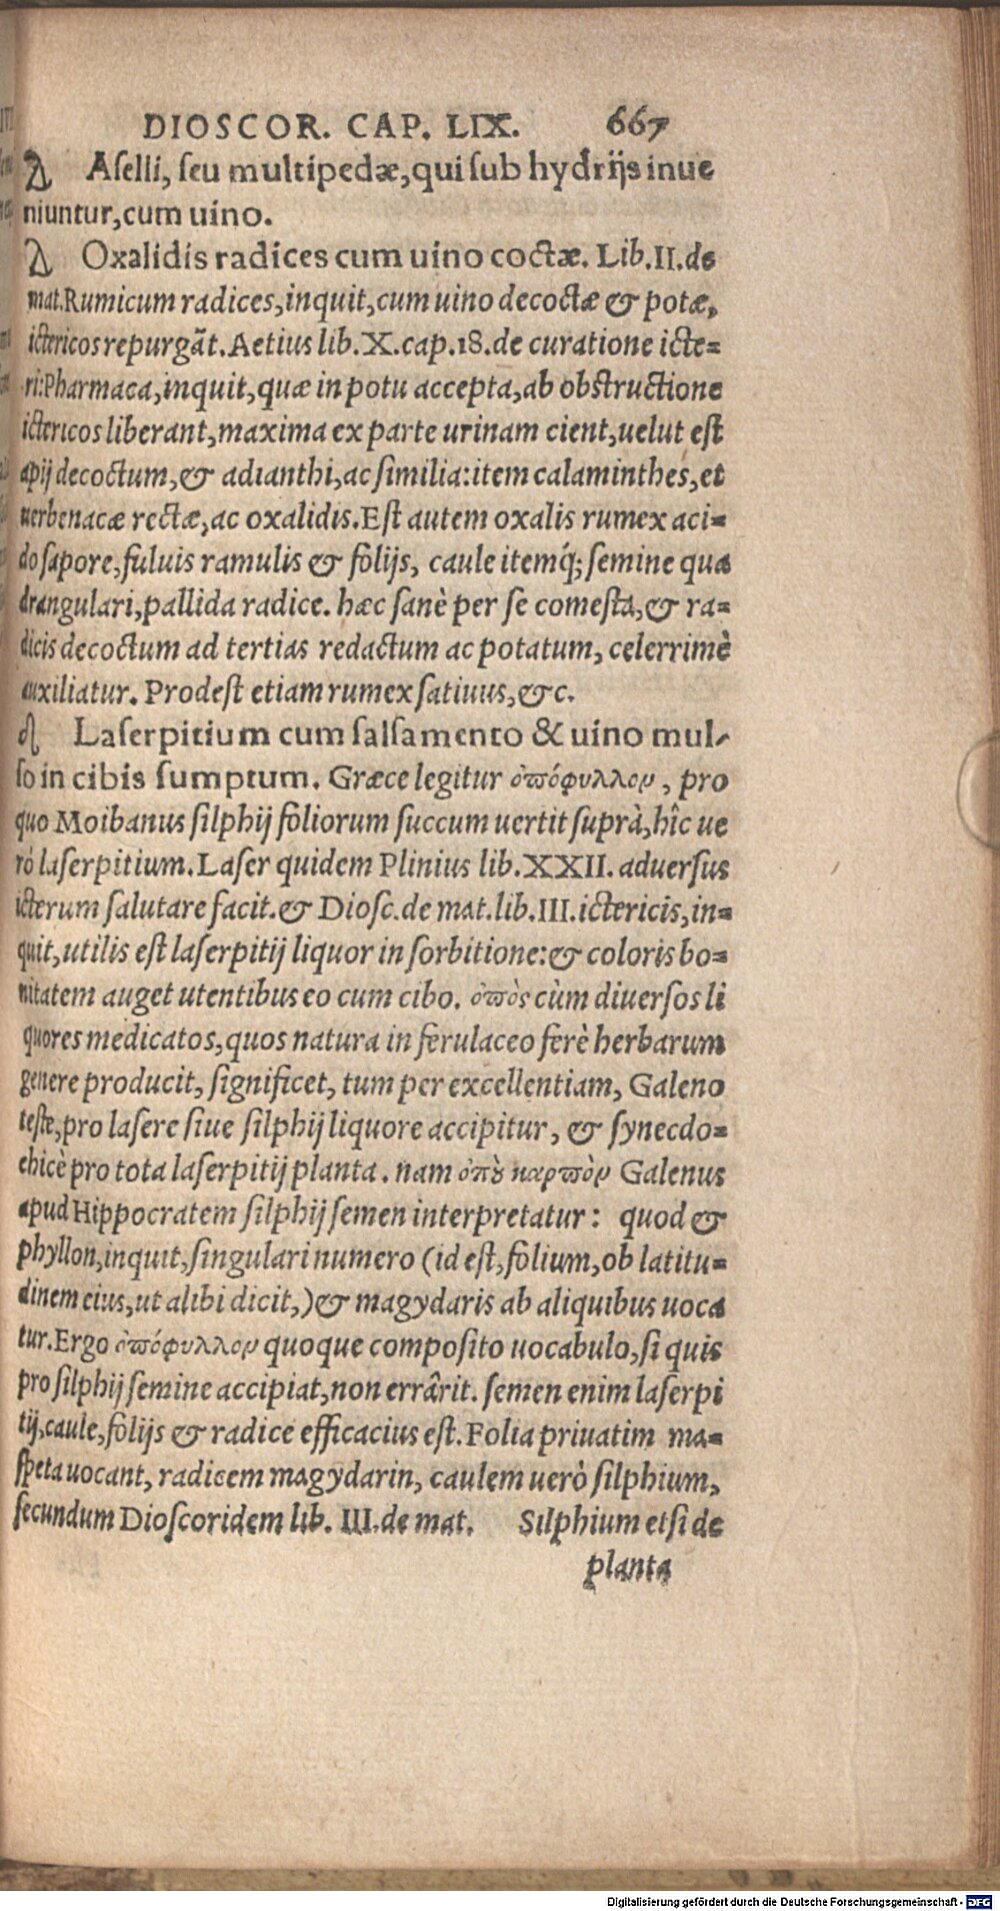 DIOSCOR. CAP. LIX. 667
Aſelli, ſeu multipedæ, qui ſub hydrijs inue
niuntur, cum uino.
Oxalidis radices cum uino coctæ. Lib. II. de
mat. Rumicum radices, inquit, cum uino decoctæ & potæ,
ictericos repurgãt. Aetius lib. X. cap. 18. de curatione icte=
ri: Pharmaca, inquit, quæ in potu accepta, ab obſtructione
ictericos liberant, maxima ex parte urinam cient, uelut eſt
apij decoctum, & adianthi, ac ſimilia: item calaminthes, et
uerbenacæ rectæ, ac oxalidis. Eſt autem oxalis rumex aci=
do ſapore, fuluis ramulis & folijs, caule itemq́; ſemine qua
drangulari, pallida radice. hæc ſanè per ſe comeſta, & ra=
dicis decoctum ad tertias redactum ac potatum, celerrimè
auxiliatur. Prodeſt etiam rumex ſatiuus, &c.
Laſerpitium cum ſalſamento & uino mul-
ſo in cibis ſumptum. Græce legitur ὀπόφυλλον, pro
quo Moibanus ſilphij foliorum ſuccum uertit ſuprà, hîc ue
rò laſerpitium. Laſer quidem Plinius lib. XXII. aduerſus
icterum ſalutare facit. & Dioſc. de mat. lib. III. ictericis, in=
quit, utilis eſt laſerpitij liquor in ſorbitione: & coloris bo=
nitatem auget utentibus eo cum cibo. ὀπὸς cùm diuerſos li
quores medicatos, quos natura in ferulaceo ferè herbarum
genere producit, ſignificet, tum per excellentiam, Galeno
teſte, pro laſere ſiue ſilphij liquore accipitur, & ſynecdo=
chicè pro tota laſerpitij planta. nam ὀπȣ̃ καρπὸν Galenus
apud Hippocratem ſilphij ſemen interpretatur: quod &
phyllon, inquit, ſingulari numero (id eſt, folium, ob latitu=
dinem eius, ut alibi dicit,) & magydaris ab aliquibus uoca
tur. Ergo ὀπόφυλλον quoque compoſito uocabulo, ſi quis
pro ſilphij ſemine accipiat, non errârit. ſemen enim laſerpi
tij, caule, folijs & radice efficacius eſt. Folia priuatim ma=
ſpeta uocant, radicem magydarin, caulem uerò ſilphium,
ſecundum Dioſcoridem lib. III. de mat. Silphium etſi de
planta
Digitalisierung gefördert durch die Deutsche Forschungsgemeinschaft - DFG